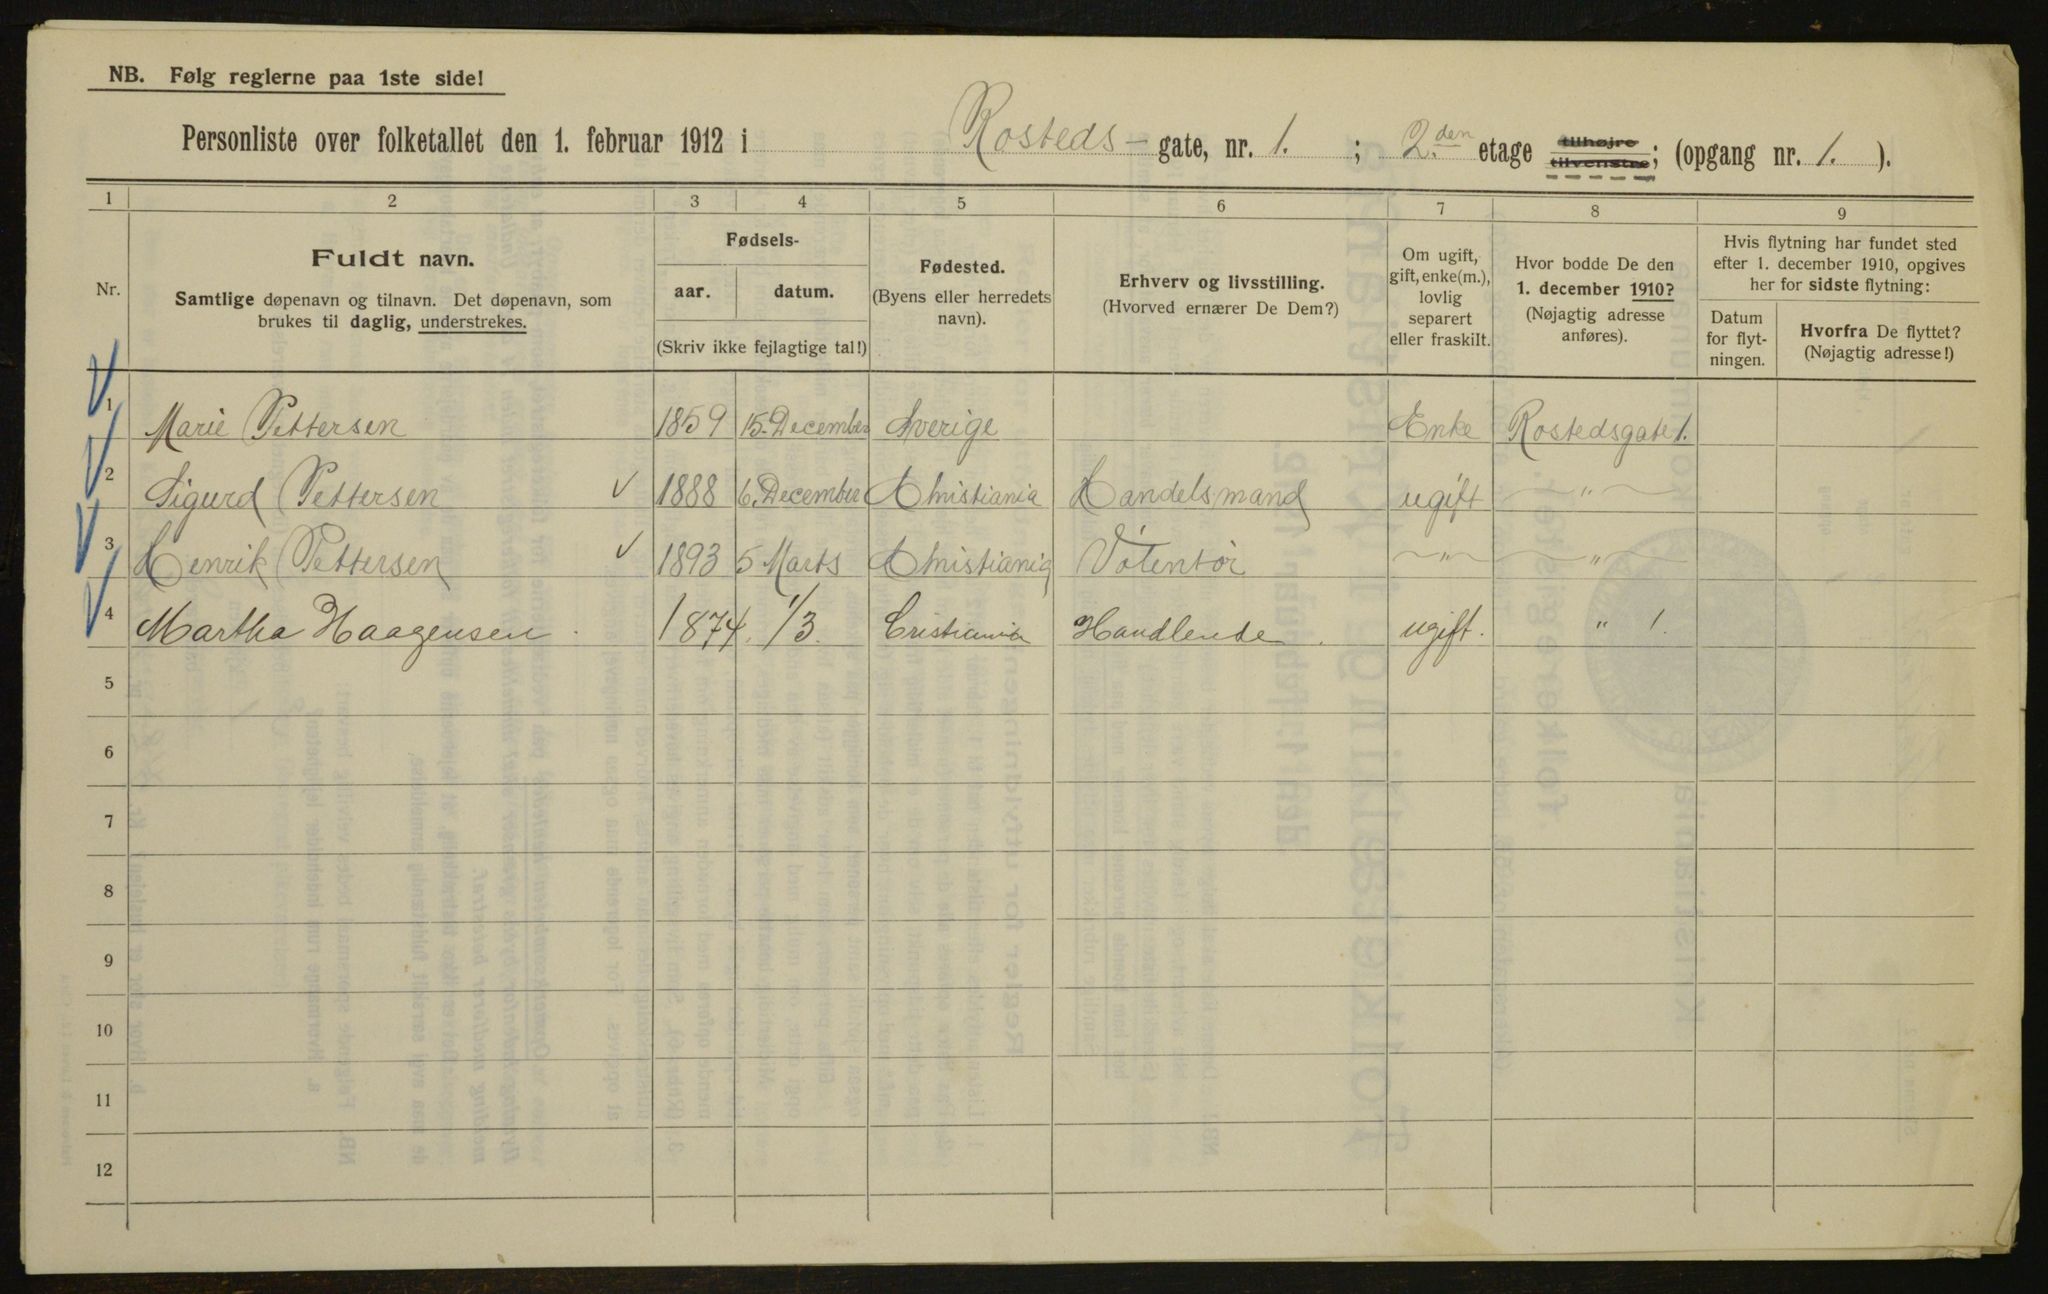 NB. Følg reglerne paa 1ste side!
Personliste over folketallet den 1. februar 1912 i Rosteds - gate, nr. 1. ; 2.den etage tilhøjre tilvenstre; (opgang nr. 1. ).
1 2 3 4 5 6 7 8 9
Nr.
Fuldt navn.
Samtlige døpenavn og tilnavn. Det døpenavn, som
brukes til daglig, understrekes.
Fødsels-
aar. datum.
(Skriv ikke fejlagtige tal!)
Fødested.
(Byens eller herredets
navn).
Erhverv og livsstilling.
(Hvorved ernærer De Dem?)
Om ugift,
gift, enke(m.),
lovlig
separert
eller fraskilt.
Hvor bodde De den
1. december 1910?
(Nøjagtig adresse
anføres).
Hvis flytning har fundet sted
efter 1. december 1910, opgives
her for sidste flytning:
Datum
for flyt-
ningen.
Hvorfra De flyttet?
(Nøjagtig adresse!)
1 Marie Pettersen 1859 15. December Sverige Enke Rostedsgate 1.
2 Sigurd Pettersen 1888 6. December Christiania Handelsmand ugift "
3 Henrik Pettersen 1893 5 Marts Christiania Volentør " "
4 Martha Haagensen 1874. 1/3. Cristiania Handlende ugift. " 1.
5
6
7
8
9
10
11
12